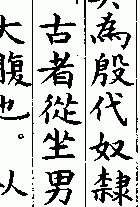 為殷代奴隸
古者從坐男
大腹也。从